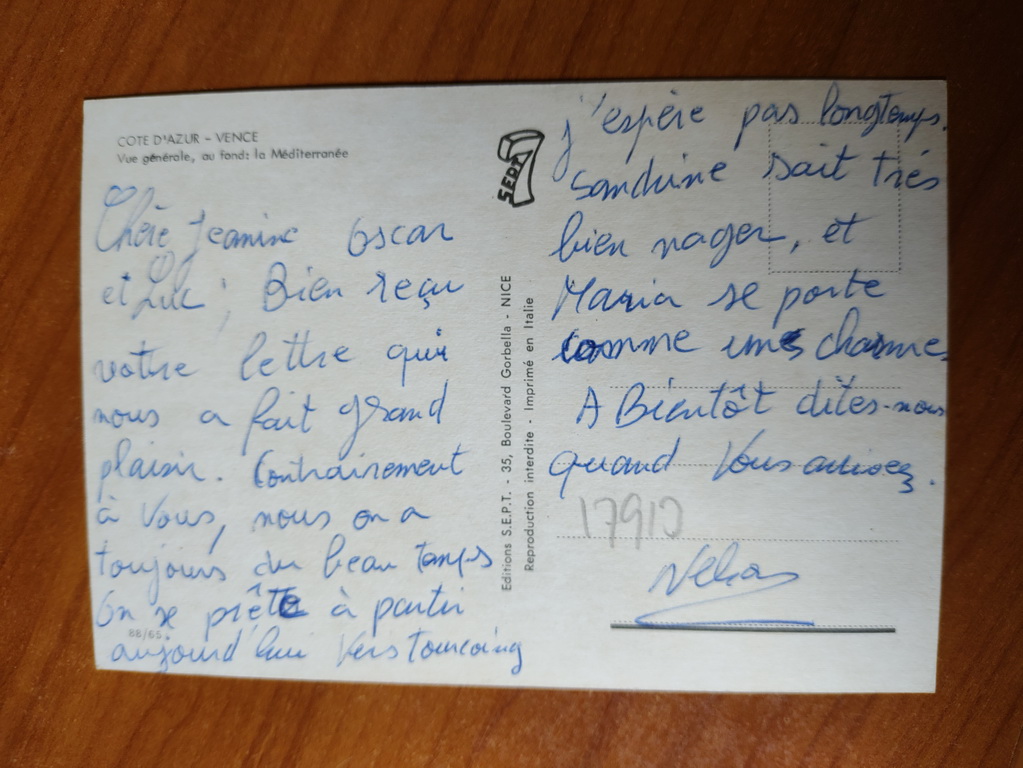 COTE D'AZUR - VENCE
Vue générale, au fond: la Méditerranée
Chère Jeanine Oscar
et Luc, Bien reçu
votre lettre qui
nous a fait grand
plaisir. Contrairement
à Vous, nous on a
toujours du beau temps
On se prête à partir
aujourd hui Vers Tourcoing
88/65.
SEPT 7
Editions S.E.P.T. - 35, Boulevard Gorbella - NICE
Reproduction interdite - Imprimé en Italie
J'espère pas longtemps.
Sandrine sait très
bien nager, et
Maria se porte
comme une charme
A Bientôt dites-nous
quand Vous arrivez.
17910